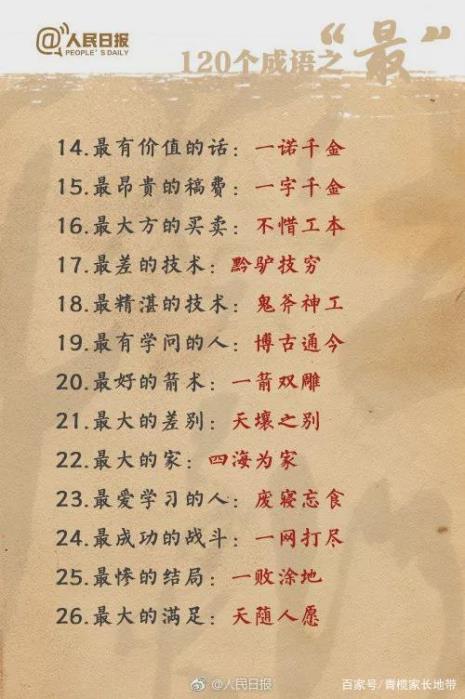 @人民日报
PEOPLE'S DAILY
120个成语之“最”
14.最有价值的话：一诺千金
15.最昂贵的稿费：一字千金
16.最大方的买卖：不惜工本
17.最差的技术：黔驴技穷
18.最精湛的技术：鬼斧神工
19.最有学问的人：博古通今
20.最好的箭术：一箭双雕
21.最大的差别：天壤之别
22.最大的家：四海为家
23.最爱学习的人：废寝忘食
24.最成功的战斗：一网打尽
25.最惨的结局：一败涂地
26.最大的满足：天随人愿
@人民日报
百家号/青榄家长地带